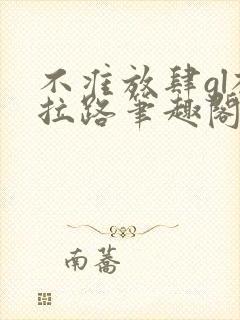 不准放肆gl
拉路笔趣阁
南蔷